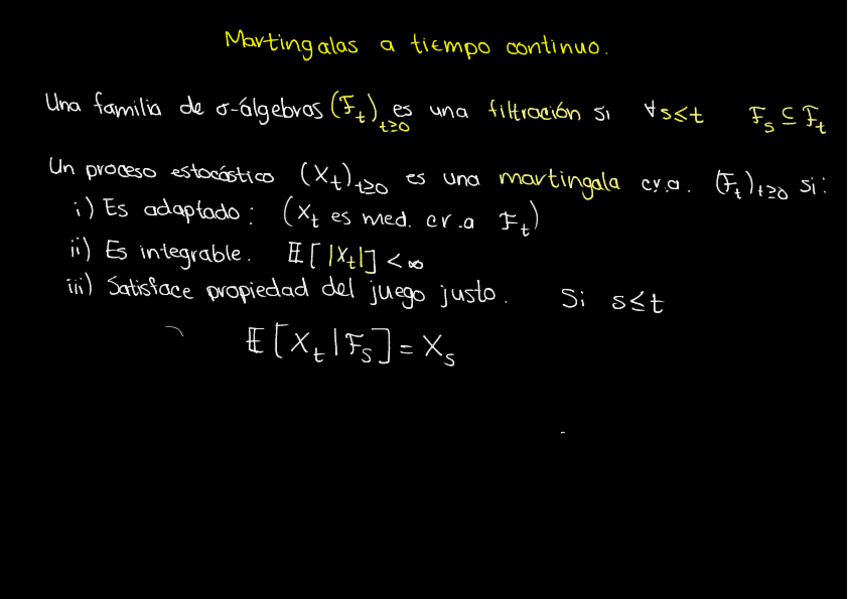 Martingalas a tiempo continuo.
Una familia de σ-álgebras (F_t)_{t≥0} es una filtración si ∀s≤t F_s ⊆ F_t
Un proceso estocástico (X_t)_{t≥0} es una martingala c.r.a. (F_t)_{t≥0} si:
i) Es adaptado: (X_t es med. c.r.a F_t)
ii) Es integrable. 𝔼[|X_t|] < ∞
iii) Satisface propiedad del juego justo. Si s≤t
𝔼[X_t | F_s] = X_s